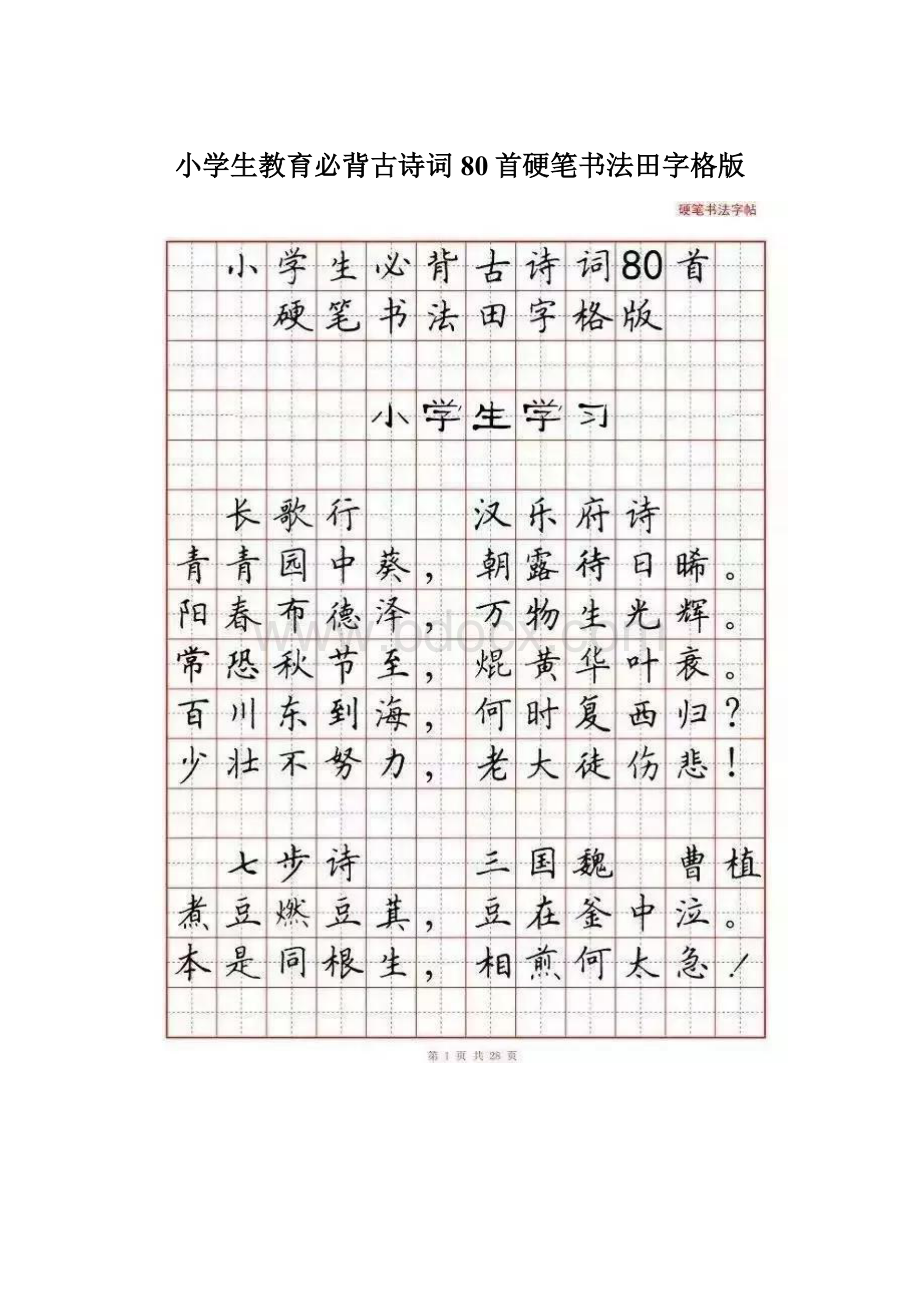 小学生教育必背古诗词80首硬笔书法田字格版
硬笔书法字帖
小学生必背古诗词80首
硬笔书法田字格版
小学生学习
长歌行 汉乐府诗
青青园中葵，朝露待日晞。
阳春布德泽，万物生光辉。
常恐秋节至，焜黄华叶衰。
百川东到海，何时复西归？
少壮不努力，老大徒伤悲！
七步诗 三国魏 曹植
煮豆燃豆萁，豆在釜中泣。
本是同根生，相煎何太急！
第 1 页 共 28 页